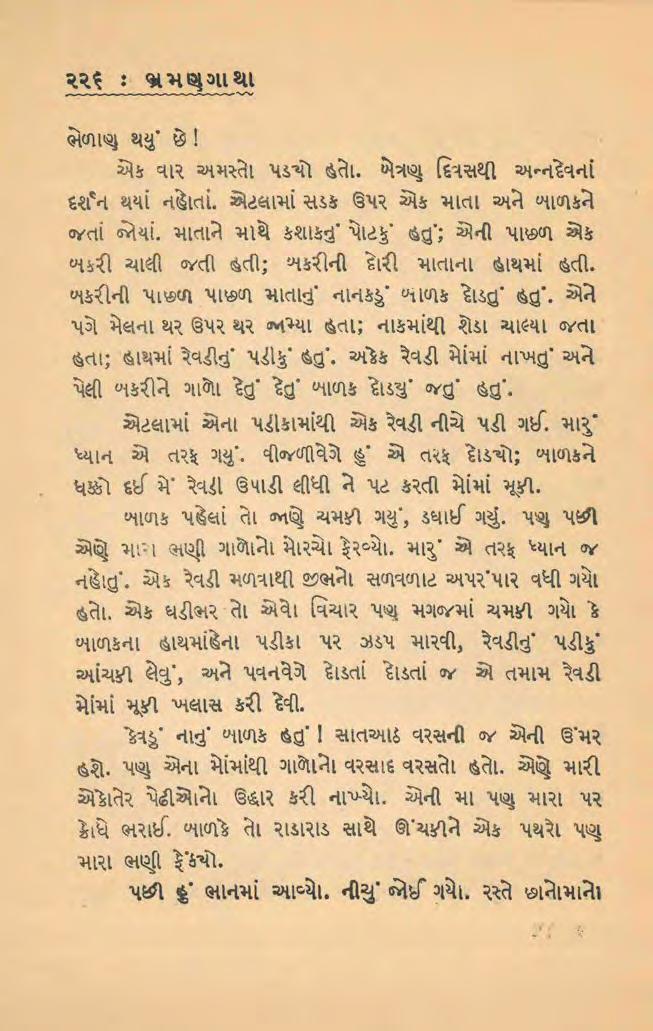 ૨૨૬ : ભ્રમણગાથા
ભેળાણ થયું છે!
એક વાર અમસ્તો પડયો હતો. બેત્રણ દિવસથી અન્નદેવનાં
દર્શન થયાં નહોતાં. એટલામાં સડક ઉપર એક માતા અને બાળકને
જતાં જોયાં. માતાને માથે કશાકનું પોટકું હતું; એની પાછળ એક
બકરી ચાલી જતી હતી; બકરીની દોરી માતાના હાથમાં હતી.
બકરીની પાછળ પાછળ માતાનું નાનકડું બાળક દોડતું હતું. એને
પગે મેલના થર ઉપર થર જામ્યા હતા; નાકમાંથી શેડા ચાલ્યા જતા
હતા; હાથમાં રેવડીનું પડીકું હતું. અકેક રેવડી મોંમાં નાખતું અને
પેલી બકરીને ગાળો દેતું દેતું બાળક દોડયું જતું હતું.
એટલામાં એના પડીકામાંથી એક રેવડી નીચે પડી ગઈ. મારું
ધ્યાન એ તરફ ગયું. વીજળીવેગે હું એ તરફ દોડયો; બાળકને
ધક્કો દઈ મેં રેવડી ઉપાડી લીધી ને પટ કરતી મોંમાં મૂકી.
બાળક પહેલાં તો જાણે ચમકી ગયું, ડઘાઈ ગયું. પણ પછી
એણે મારા ભણી ગાળોનો મોરચો ફેરવ્યો. મારું એ તરફ ધ્યાન જ
નહોતું. એક રેવડી મળવાથી જીભનો સળવળાટ અપરંપાર વધી ગયો
હતો. એક ઘડીભર તો એવો વિચાર પણ મગજમાં ચમકી ગયો કે
બાળકના હાથમાંહેના પડીકા પર ઝડપ મારવી, રેવડીનું પડીકું
આંચકી લેવું, અને પવનવેગે દોડતાં દોડતાં જ એ તમામ રેવડી
મોંમાં મૂકી ખલાસ કરી દેવી.
કેવડું નાનું બાળક હતું! સાતઆઠ વરસની જ એની ઉંમર
હશે. પણ એના મોંમાંથી ગાળોનો વરસાદ વરસતો હતો. એણે મારી
એકોતેર પેઢીઓનો ઉદ્ધાર કરી નાખ્યો. એની મા પણ મારા પર
ક્રોધે ભરાઈ. બાળકે તો રાડારાડ સાથે ઊંચકીને એક પથરો પણ
મારા ભણી ફેંકયો.
પછી હું ભાનમાં આવ્યો. નીચું જોઈ ગયો. રસ્તે છાનોમાનો